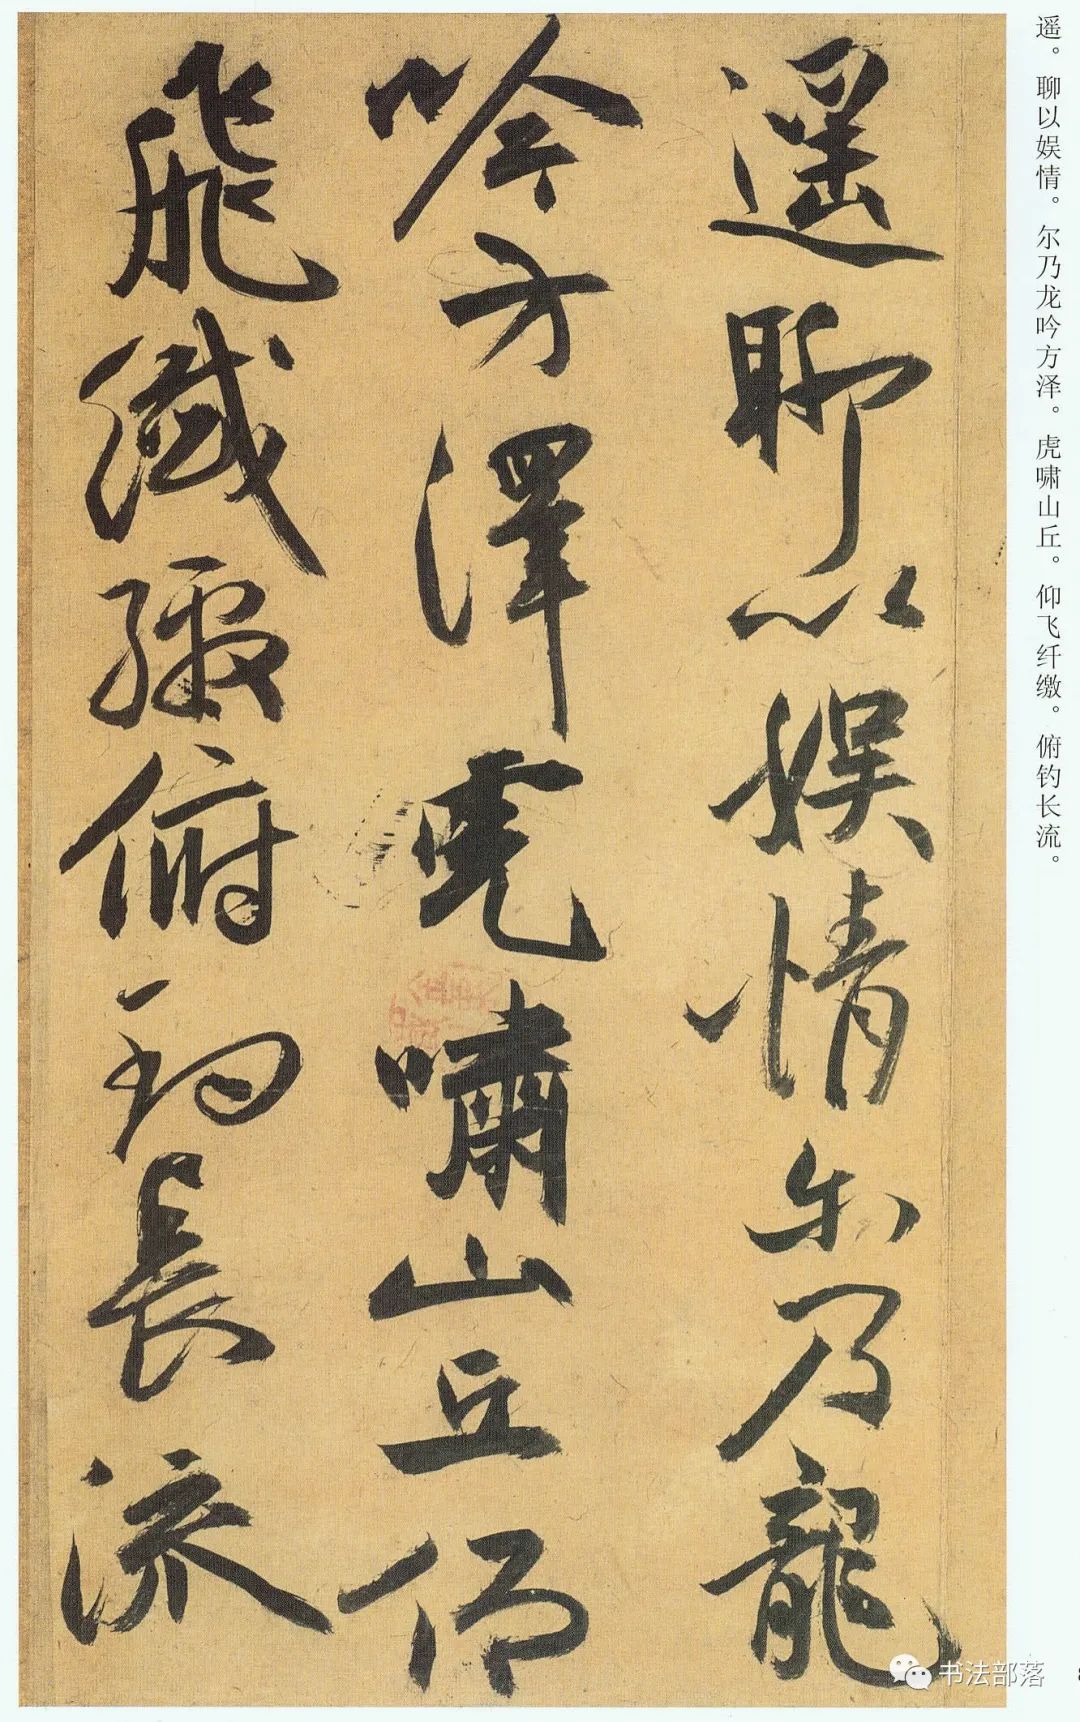 遥。聊以娱情。尔乃龙吟方泽。虎啸山丘。仰飞纤缴。俯钓长流。
遥聊以娱情尓乃龍
吟方澤虎嘯山丘仰
飛纖缴俯钓長流
书法部落